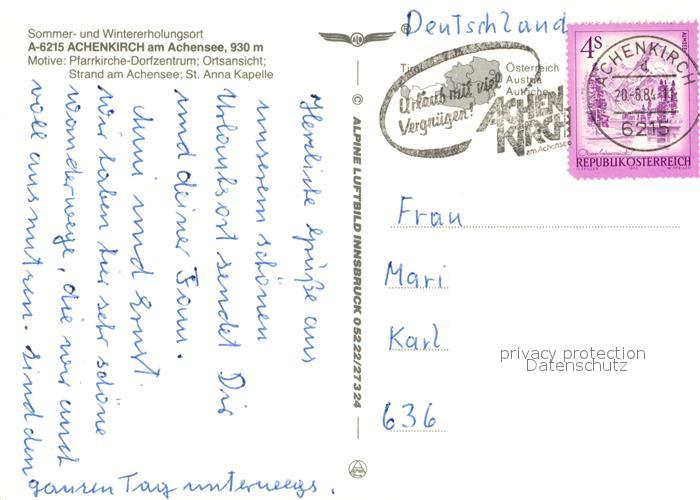 Sommer- und Wintererholungsort
A-6215 ACHENKIRCH am Achensee, 930 m
Motive: Pfarrkirche-Dorfzentrum; Ortsansicht;
Strand am Achensee; St. Anna Kapelle
Herzliche Grüße aus
unserem schönen
Urlaubsort sendet Dir
und deiner Fam.
Anni und Ernst.
Wir haben hier sehr schöne
Wanderwege, die wir auch
voll ausnutzen. Sind den
ganzen Tag unterwegs.
© ALPINE LUFTBILD INNSBRUCK 05222/27324
Deutschland
Tirol
Österreich
Austria
Autriche
Urlaub mit viel
Vergnügen!
ACHEN
KIRCH
am Achensee
ACHENKIRCH
20.-8.84-11
6215
4S
REPUBLIK ÖSTERREICH
Frau
Mari
Karl
636
privacy protection
Datenschutz